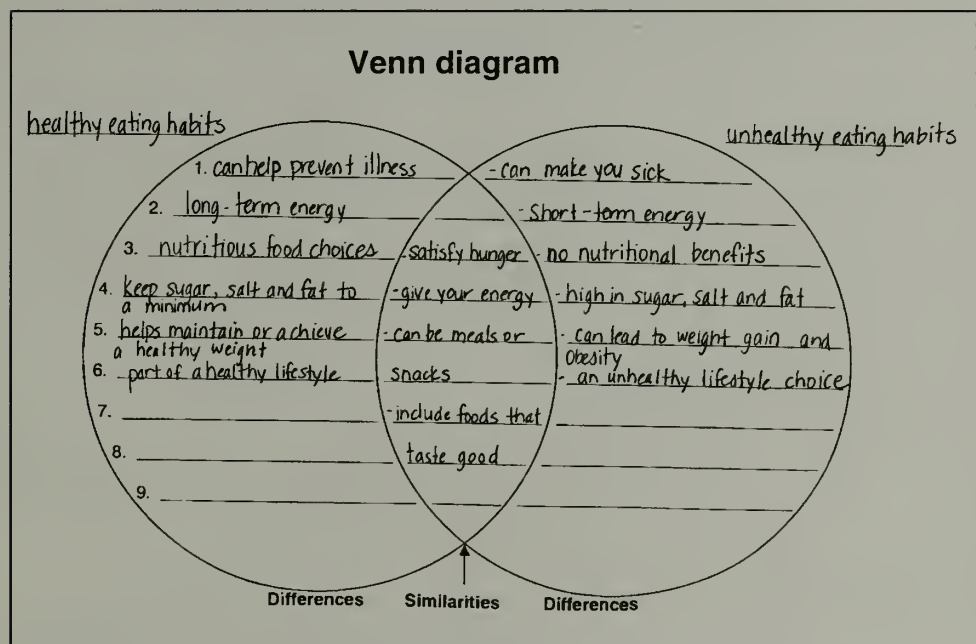 Venn diagram
healthy eating habits
unhealthy eating habits
1. can help prevent illness
2. long-term energy
3. nutritious food choices
4. keep sugar, salt and fat to
a minimum
5. helps maintain or achieve
a healthy weight
6. part of a healthy lifestyle
7.
8.
9.
-satisfy hunger
-give your energy
-can be meals or
snacks
-include foods that
taste good
-can make you sick
-short-term energy
- no nutritional benefits
-high in sugar, salt and fat
- can lead to weight gain and
obesity
- an unhealthy lifestyle choice
Differences
Similarities
Differences